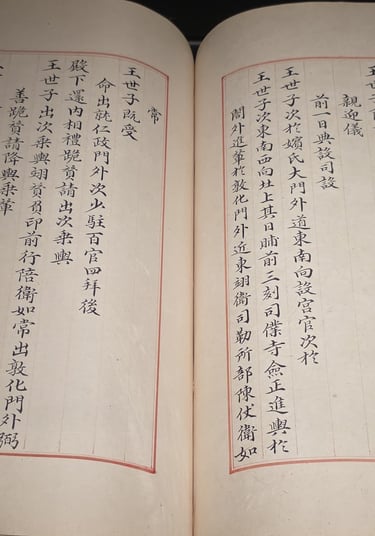 王世子
親迎儀
前一日典設司設
王世子次於嬪氏大門外道東南向設宮官次於
王世子次東南西向北上其日晡前三刻司僕寺僉正進輿於
閤外進輦於敦化門外近東翊衛司勒所部陳仗衛如
常
王世子既受
命出就仁政門外次少駐百官四拜後
殿下還內相禮跪贊請出次乘輿
王世子出次乘輿翊贊負印前行陪衛如常出敦化門外弼
善跪贊請降輿乘輦